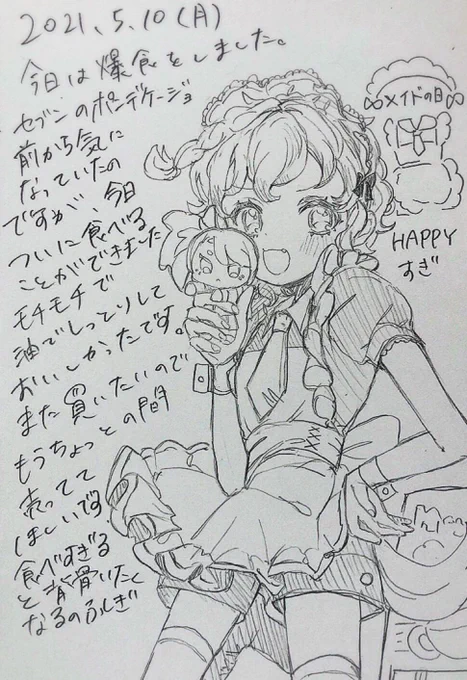 2021.5.10(月)
今日は爆食をしました。
セブンのポンデケージョ
前から気に
なっていたの
ですが 今日
ついに食べる
ことができました
モチモチで
油でしっとりして
おいしかったです。
また買いたいので
もうちょっとの間
売ってて
ほしいです
食べすぎる
と背骨いたく
なるのふしぎ
∞メイドの日∞
HAPPY
すぎ